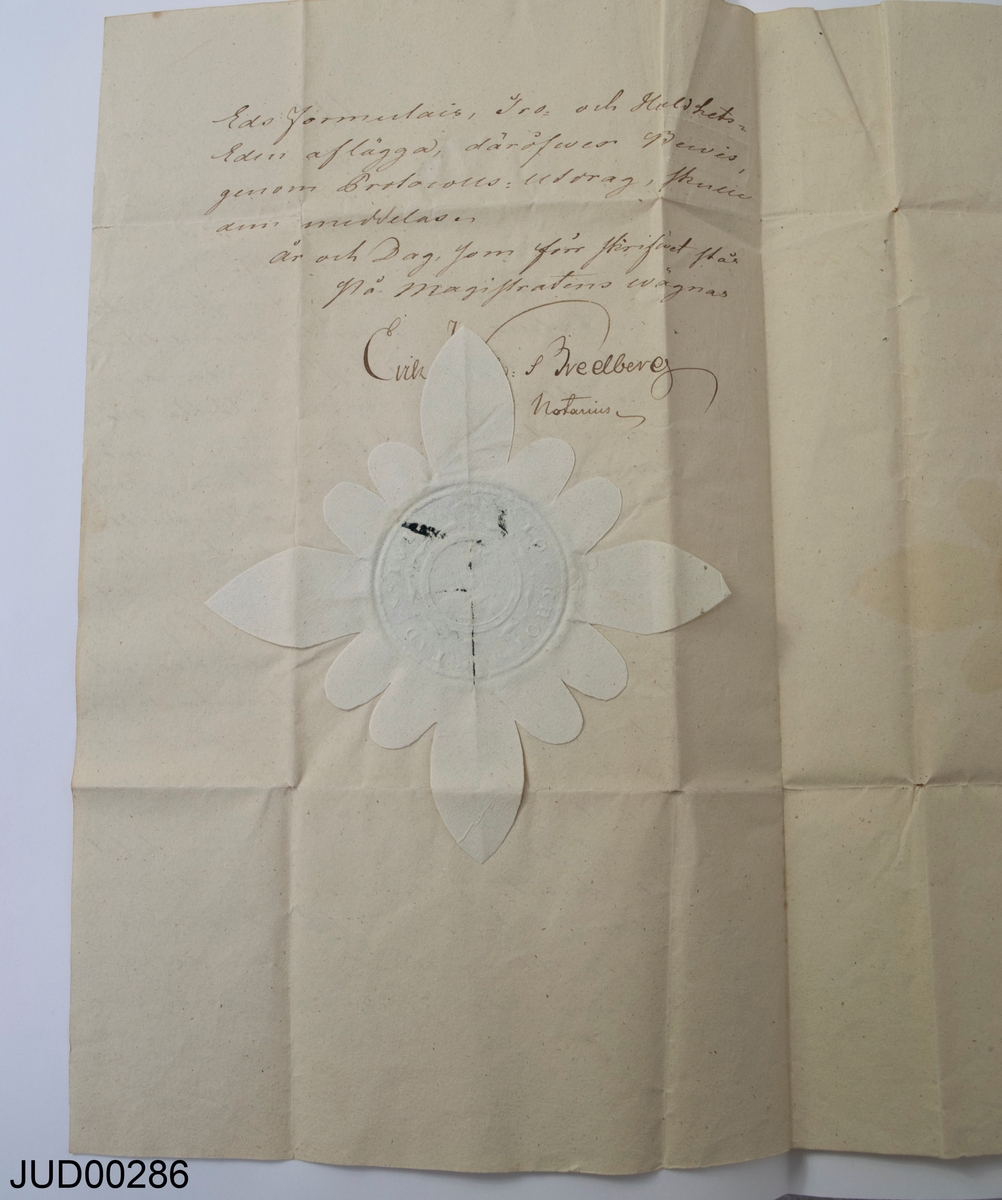 Eds Formulair, Tro- och Huldhets-
Eden aflägga, däröfwer Bewis,
genom Protocolls-Utdrag,
den meddelas.
År och Dag, som förr skrifwet står
På Magistratens wägnar
Erik : S Bredberg
Notarius
JUD00286